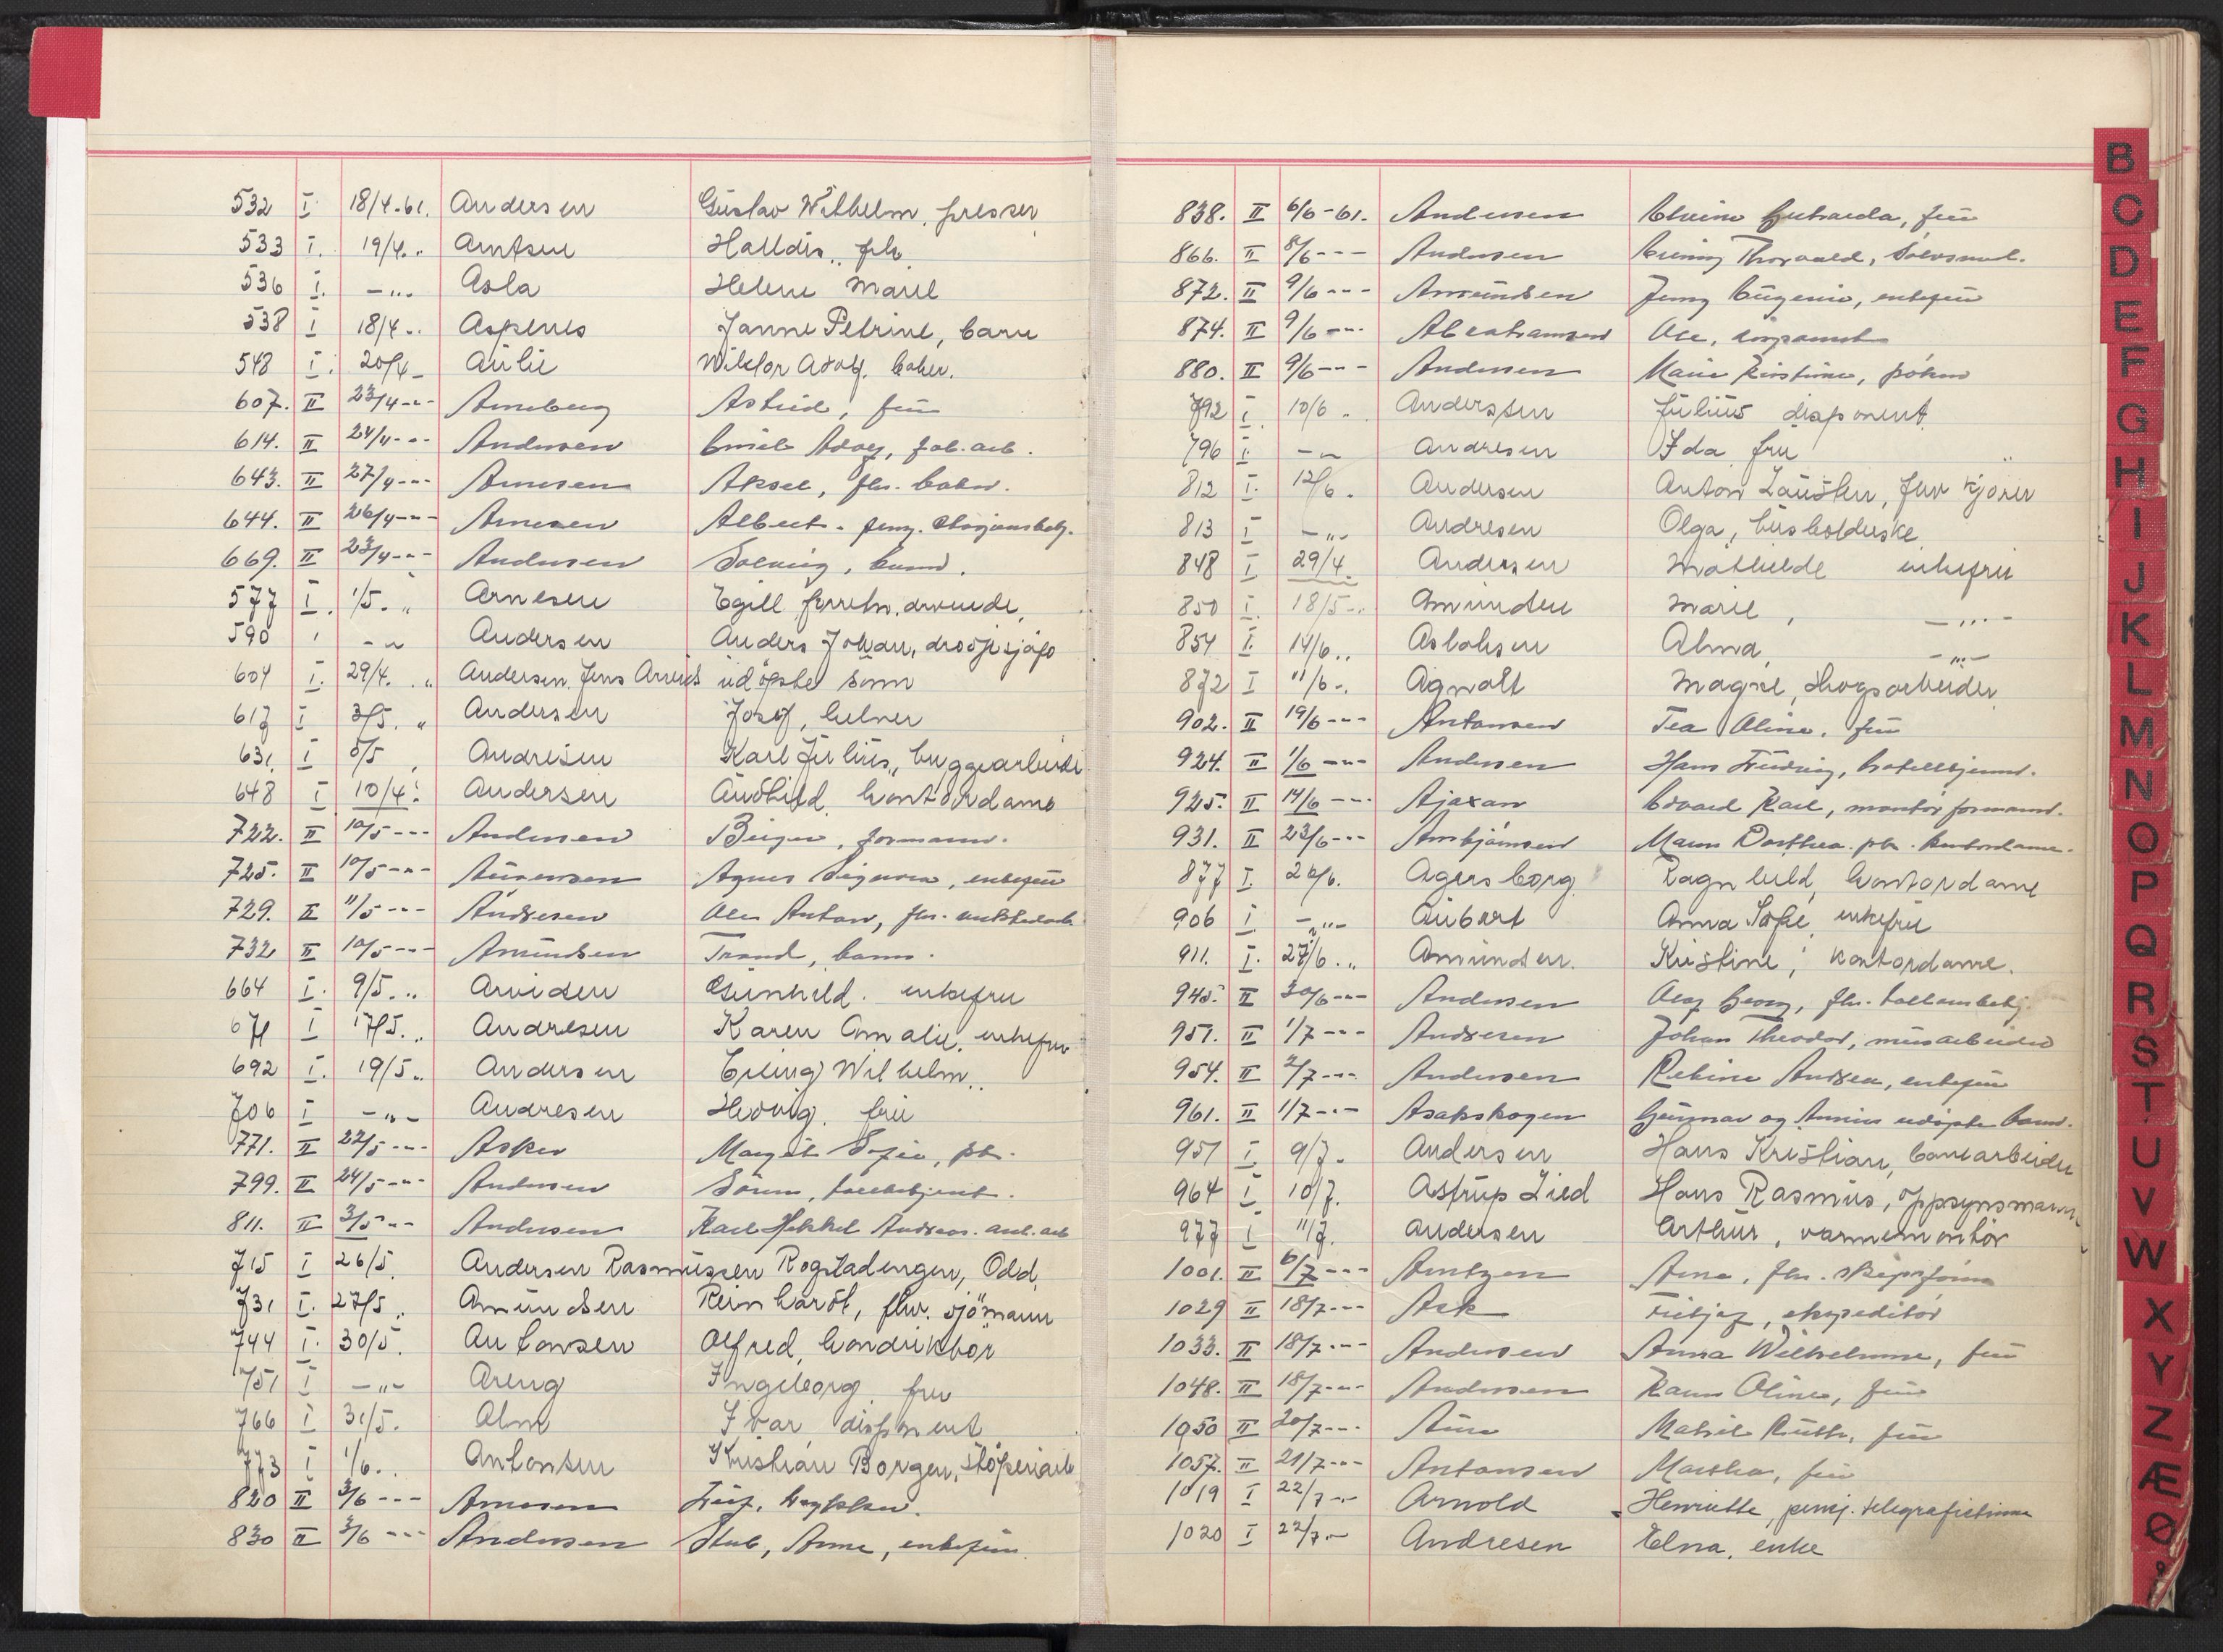 532 I 18/4-61. Andersen Gustav Wilhelm, presser
533 I. 19/4. " Arntsen Halldis, frk.
536 I. -"- Asla Helene Marie
538 I 18/4 " Aspenes Janne Petrine, barn
548 I. 20/4 - Aulie Wiktor Adolf, baker.
607. II 23/4 -"- Arneberg Astrid, frü
614. II 24/4 -"- Andersen Emil Adolf, fab. arb.
643. II 27/4 -"- Arnesen Aksel, fhv. baker.
644. II 26/4 -"- Arnesen Albert.
669. II 23/4 -"- Andersen Solveig, barn.
577 I. 1/5. " Arnesen Egill forretn. drivende
590 ' -"- Andersen Anders Johan, drosjesjåfø
604 I. 29/4. " Andersen, Jens Arvid udöpte sönn
617 I 3/5. " Andersen Josef, kelner
631. I 5/5 Andresen Karl Julius, bryggearbeide
648 I 10/4. Andersen Audhild kontordame
722. II 10/5 -"- Andersen Birger, formann.
725. II 10/5 -"- Agnes enkefrü
729. II 11/5 -"- Andresen Ole Anton, fhv.
732 II 10/5 -"- Amundsen Trond, barn.
664 I. 9/5. " Arvidsen Gunhild. enkefru
671 I 17/5. " Andresen Karen Amalie, enkefru
692 I. 19/5 " Andersen Erling Wilhelm
706 I -"- Andresen Hedvig. frü
771. II 22/5 -"- Asker Margit Sofie, frk.
799. II 24/5 -"- Andersen Sören, tollbetjent.
811. II 3/5 -"- Andersen Karl Andreas. anl. arb
715 I 26/5 Andersen Rasmussen Rogstadengen, Odd
731 I. 27/5 " Amundsen Reinhardt, fhv. sjömann
744 I. 30/5. Antonsen Alfred, konduktör
751 I -"- Areng Ingeborg. fru
766 I 31/5. Alm Ivar disponent
773 I 1/6. " Antonsen Kristian Borgen, stöperiarb
820 II 3/6 -"- Arnesen
830 II 3/6 -"- Andersen Stub, Anne, enkefrü
838. II 6/6-61. Andersen frü
866. II 8/6 -"- Andersen Thorvald, Sölvsmed.
872. II 9/6 -"- Amundsen Jenny Eugenie, enkefrü
874. II 9/6 -"- Abrahamsen Ole,
880. II 9/6 -"- Andersen Marie Kirstine,
792 I. 10/6 " Anderssen Julius disponent
796 I. -"- Andresen Ida frü
812 I. 12/6. Andersen Anton Lauritz, fhv kjörer
813 I -"- Andresen Olga, husholderske
848 I 29/4. Andersen Mathilde enkefrü
850 I. 18/5 " Amundsen Marie, -"-
854 I. 14/6 " Asbahsen Alma, -"-
872 I 11/6 " Agnalt Magne, skogsarbeider
902. II 19/6 -"- Antonsen Tea Oline, frü
924. II 1/6 -"- Andersen Hans
925. II 14/6 -"- Ajaxan Edvard Karl, montör formand.
931. II 23/6 -"- Arnbjörnsen Maren Dorthea. frk. kontordame.
877 I. 26/6. Agersborg Ragnhild, kontordame
906 I. -"- Aubert Anna Sofie enkefrü
911. I. 27/6. " Amundsen. Kristine, kontordame.
945. II 30/6 -"- Andersen Olaf Georg, fhv.
951. II 1/7 -"- Andresen Johan Theodor, murarbeider
954. II 2/7 -"- Andersen Andrea, enkefrü
961. II 1/7 -"- Asakskogen Gunnar og udöpte barn.
951 I 9/7. Andersen Hans Kristian, banearbeider
964 I 10/7. Astrup Lied Hans Rasmus, oppsynsmann
977 I 11/7. Andersen Arthur, varmemontör
1001. II 6/7 -"- Arntzen Arne, fhv.
1029 II 18/7 -"- Ask Fritjof, ekspeditör
1033. II 18/7 -"- Andersen Anna Wilhelmine, frü
1048. II 18/7 -"- Andersen Karen Oline, frü
1050 II 20/7 -"- Aune Ruth, frü
1057. II 21/7 -"- Antonsen Martha, frü
1019 I 22/7 -"- Arnold Henriette, pensj. telegrafistinne
1020 I 22/7 -"- Andresen Elna, enke
B
C
D
E
F
G
H
I
J
K
L
M
N
O
P
Q
R
S
T
U
V
W
X
Y
Z
Æ
Ø
Å